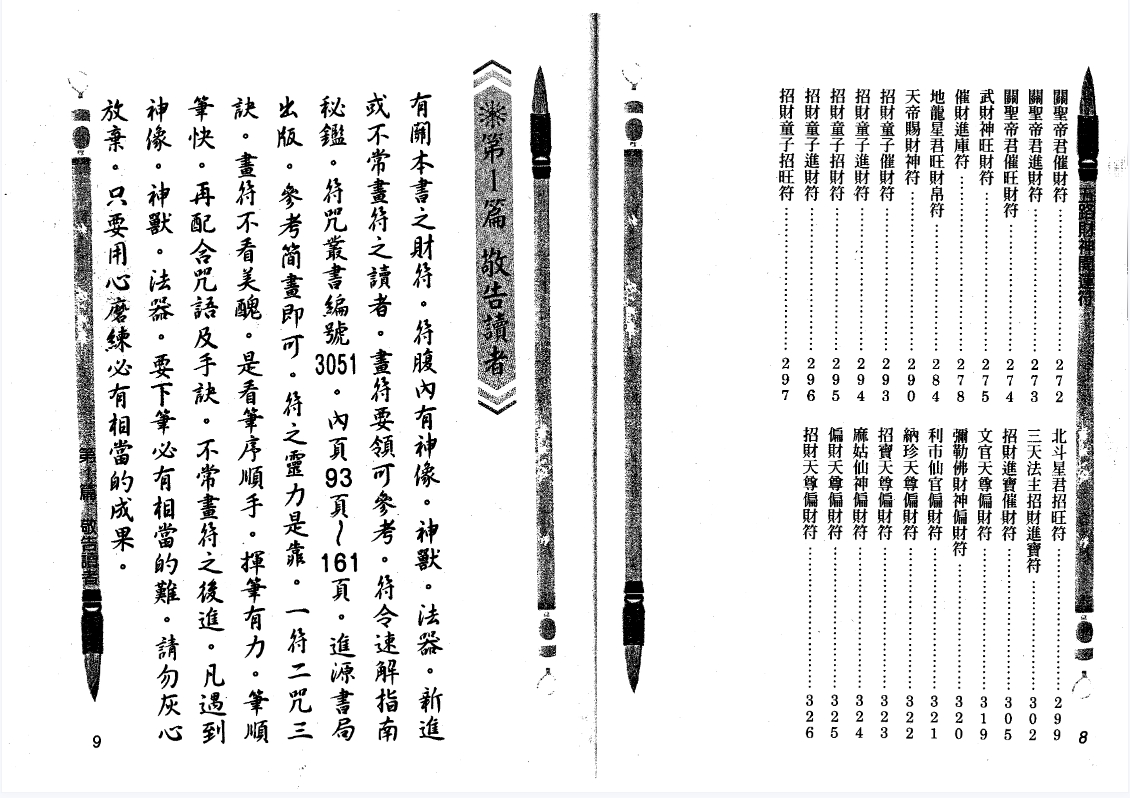 五路財神開運符
關聖帝君催財符……272
關聖帝君進財符……273
關聖帝君催旺財符……274
武財神旺財符……275
催財進庫符……278
地龍星君旺財帛符……284
天帝賜財神符……290
招財童子催財符……293
招財童子進財符……294
招財童子招財符……295
招財童子進財符……296
招財童子招旺符……297
北斗星君招旺符……299
三天法主招財進寶符……302
招財進寶催財符……305
文官天尊偏財符……319
彌勒佛財神偏財符……320
利市仙官偏財符……321
納珍天尊偏財符……322
招寶天尊偏財符……323
麻姑仙神偏財符……324
偏財天尊偏財符……325
招財天尊偏財符……326
8
第1篇 敬告讀者
有關本書之財符。符腹內有神像。神獸。法器。新進
或不常畫符之讀者。畫符要領可參考。符令速解指南
秘鑑。符咒叢書編號3051。內頁93頁~161頁。進源書局
出版。參考簡畫即可。符之靈力是靠。一符二咒三
訣。畫符不看美醜。是看筆序順手。揮筆有力。筆順
筆快。再配合咒語及手訣。不常畫符之後進。凡遇到
神像。神獸。法器。要下筆必有相當的難。請勿灰心
放棄。只要用心磨練必有相當的成果。
第1篇 敬告讀者
9